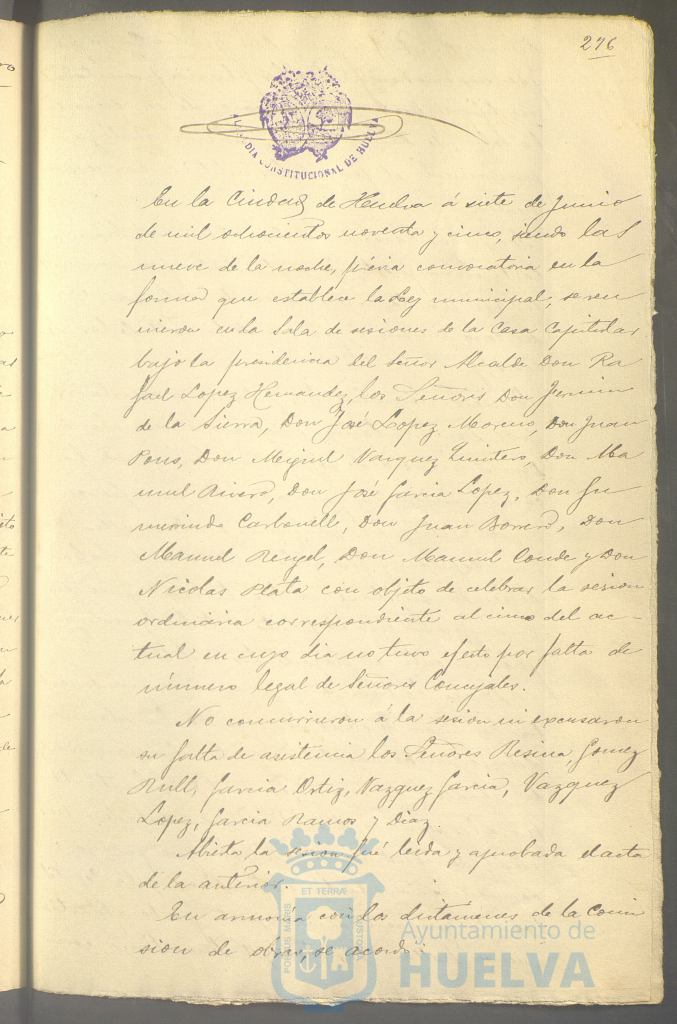 276
ALCALDIA CONSTITUCIONAL DE HUELVA
En la Ciudad de Huelva á siete de Junio
de mil ochocientos noventa y cinco, siendo las
nueve de la noche, prévia convocatoria en la
forma que establece la Ley municipal, se reu
nieron en la Sala de sesiones de la Casa Capitular
bajo la presidencia del Señor Alcalde Don Ra
fael Lopez Hernandez, los Señores Don Fermin
de la Sierra, Don José Lopez Moreno, Don Juan
Pons, Don Miguel Vazquez Quintero, Don Ma
nuel Rivero, Don José Garcia Lopez, Don Gu
mersindo Carbonell, Don Juan Borrero, Don
Manuel Rengel, Don Manuel Conde y Don
Nicolas Plata con objeto de celebrar la sesion
ordinária correspondiente al cinco del ac-
tual en cuyo dia no tuvo efecto por falta de
número legal de Señores Concejales.
No concurrieron á la sesion ni excusaron
su falta de asistencia los Señores Resina, Gomez
Rull, Garcia Ortiz, Vazquez Garcia, Vazquez
Lopez, Garcia Ramos y Diaz.
Abierta la sesion fué leida y aprobada el acta
de la anterior.
En armonia con los dictámenes de la Comi
sion de obras, se acordó:
PORTUS MARIS ET TERRAE CUSTODIA
Ayuntamiento de
HUELVA